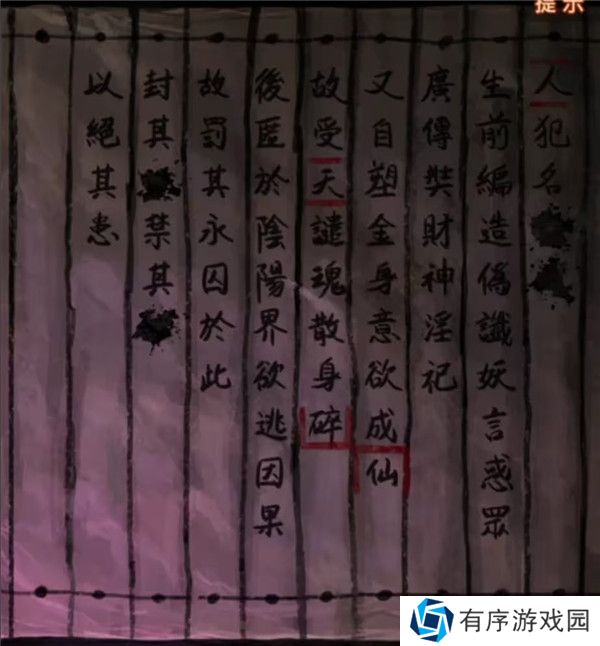 提示
人犯名
生前編造偽讖妖言惑眾
廣傳奘財神淫祀
又自塑金身意欲成仙
故受天譴魂散身碎
後匿於陰陽界欲逃因果
故罰其永囚於此
封其禁其
以絕其患
有序游戏园